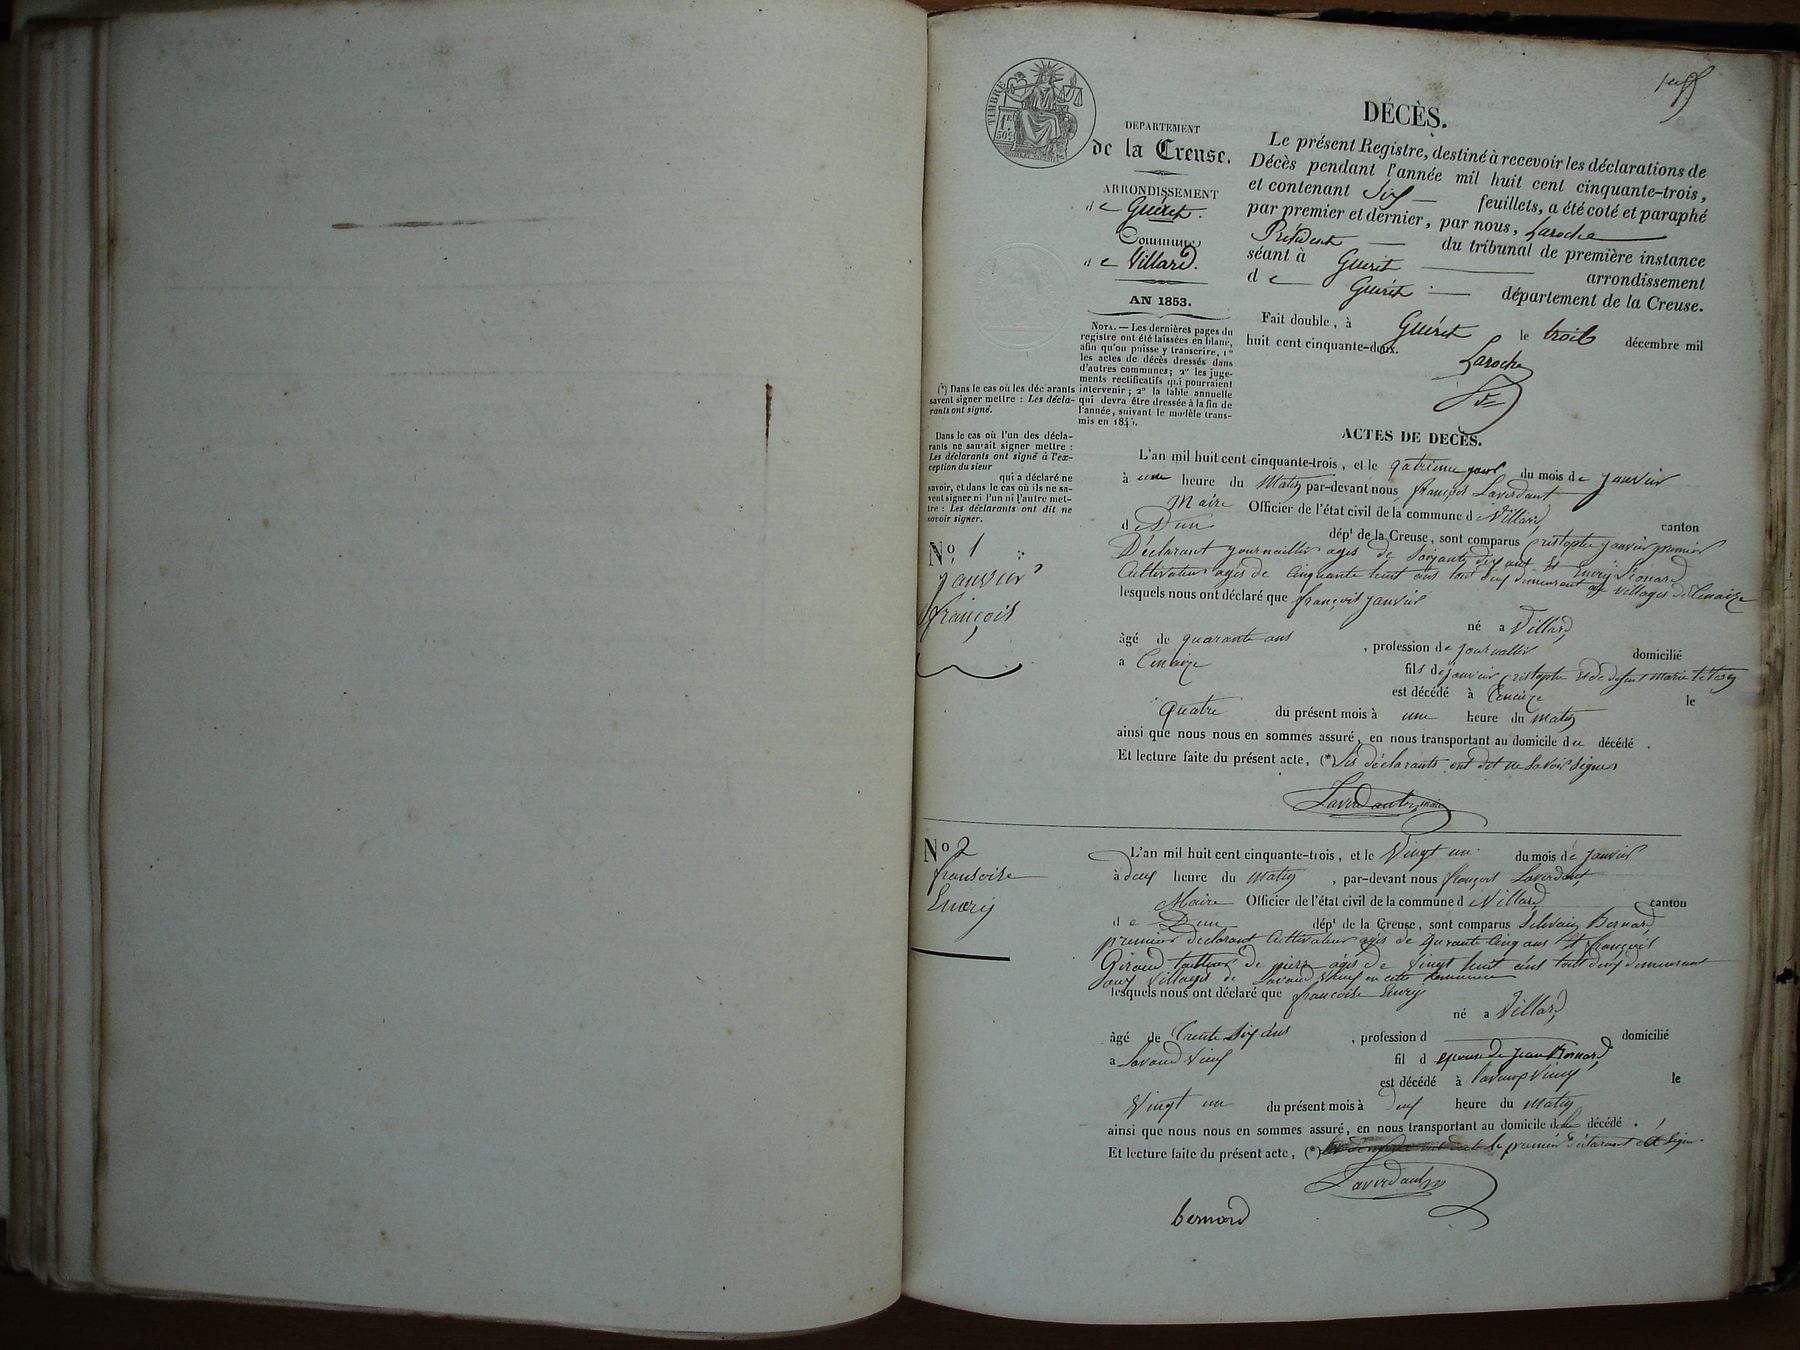 TIMBRE
1F
50c
DÉPARTEMENT
de la Creuse.
ARRONDISSEMENT
de Guéret.
Commune
de Villard.
AN 1853.
NOTA. — Les dernières pages du
registre ont été laissées en blanc,
afin qu'on puisse y transcrire, 1°
les actes de décès dressés dans
d'autres communes; 2° les juge-
ments rectificatifs qui pourraient
intervenir; 2° la table annuelle
qui devra être dressée à la fin de
l'année, suivant le modèle trans-
mis en
(*) Dans le cas où les déclarants
savent signer mettre : Les décla-
rants ont signé.
Dans le cas où l'un des décla-
rants ne saurait signer mettre :
Les déclarants ont signé à l'ex-
ception du sieur
qui a déclaré ne
savoir, et dans le cas où ils ne sa-
vent signer ni l'un ni l'autre met-
tre : Les déclarants ont dit ne
savoir signer.
DÉCÈS.
Le présent Registre, destiné à recevoir les déclarations de
Décès pendant l'année mil huit cent cinquante-trois,
et contenant Six feuillets, a été coté et paraphé
par premier et dernier, par nous, Laroche
Président du tribunal de première instance
séant à Guéret arrondissement
de Guéret département de la Creuse.
Fait double, à Guéret le trois décembre mil
huit cent cinquante-deux.
Laroche
ACTES DE DÉCÈS.
N° 1
janvier
françois
L'an mil huit cent cinquante-trois, et le qatrieme jour du mois de janvier
à une heure du Matin par-devant nous françois Laverdant
Maire Officier de l'état civil de la commune d Villard canton
de Dun dépt de la Creuse, sont comparus Cristophe janvier premier
Déclarant journallier agés de Soixante dix ans et Emery Léonard
Cultivateur agés de Cinquante huit ans tout deux demeurant au villages de Cenaize
lesquels nous ont déclaré que françois janvier
né a Villard
âgé de quarante ans, profession de journallier domicilié
a Cenaize fils de janvier Cristophe et de defunt Marie
est décédé à Cenaize le
Quatre du présent mois à une heure du matin
ainsi que nous nous en sommes assuré, en nous transportant au domicile du décédé.
Et lecture faite du présent acte, (*) Les déclarants ont dit ne Savoir Signer
Laverdant maire
N° 2
fransoise
Emery
L'an mil huit cent cinquante-trois, et le Vingt un du mois de janvier
à deux heure du Matin, par-devant nous françois Laverdant
Maire Officier de l'état civil de la commune d Villard canton
de Dun dépt de la Creuse, sont comparus Silvain Bernard
premier déclarant Cultivateur agés de Quarante Cinq ans et françois
Giraud tailleur de pierre agés de Vingt huit ans tout deux demeurant
aux Village de Lavaud Vieux en cette Commune
lesquels nous ont déclaré que francoise Emery
né a Villard
âgé de Trente Six ans, profession d domicilié
a Lavaud Vieux fil d epouse de Jean Bernard
est décédé à Lavaux Vieux le
Vingt un du présent mois à deux heure du Matin
ainsi que nous nous en sommes assuré, en nous transportant au domicile de la décédé.
Et lecture faite du présent acte, (*) le premier déclarant a Signé
Laverdant
bernard